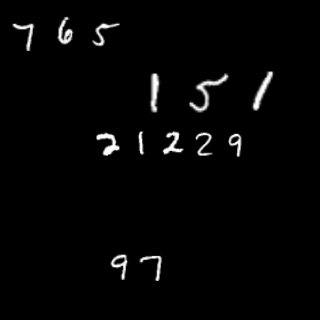 765
151
21229
97